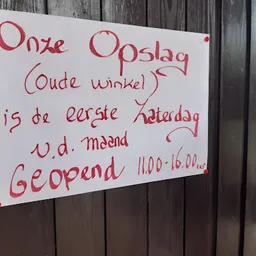 Onze Opslag
(Oude winkel)
is de eerste Zaterdag
v.d. maand
Geopend 11.00-16.00 uur